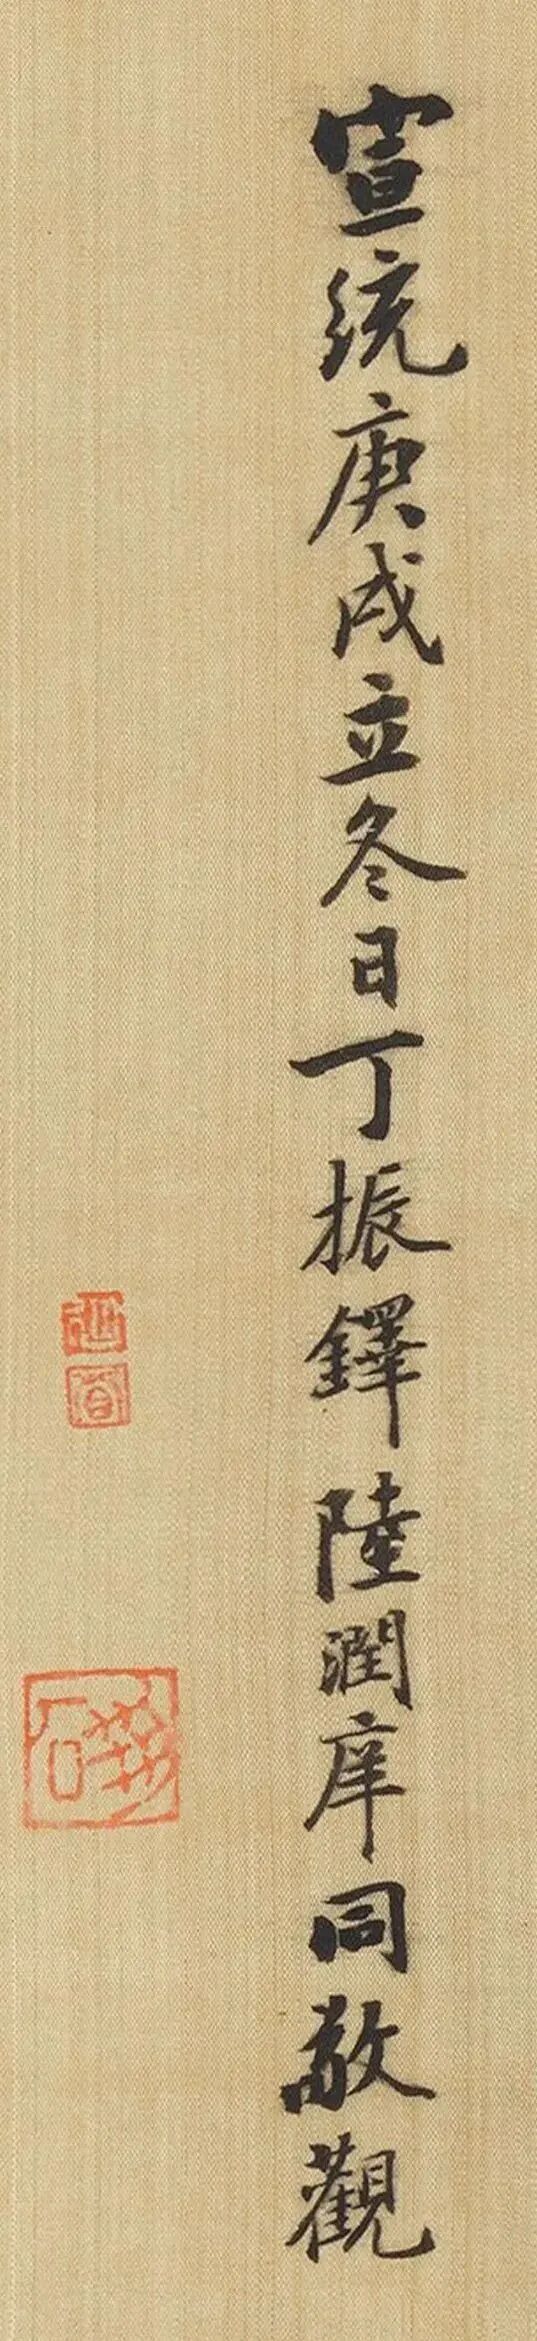 宣統庚戌立冬日丁振鐸陸潤庠同敬觀